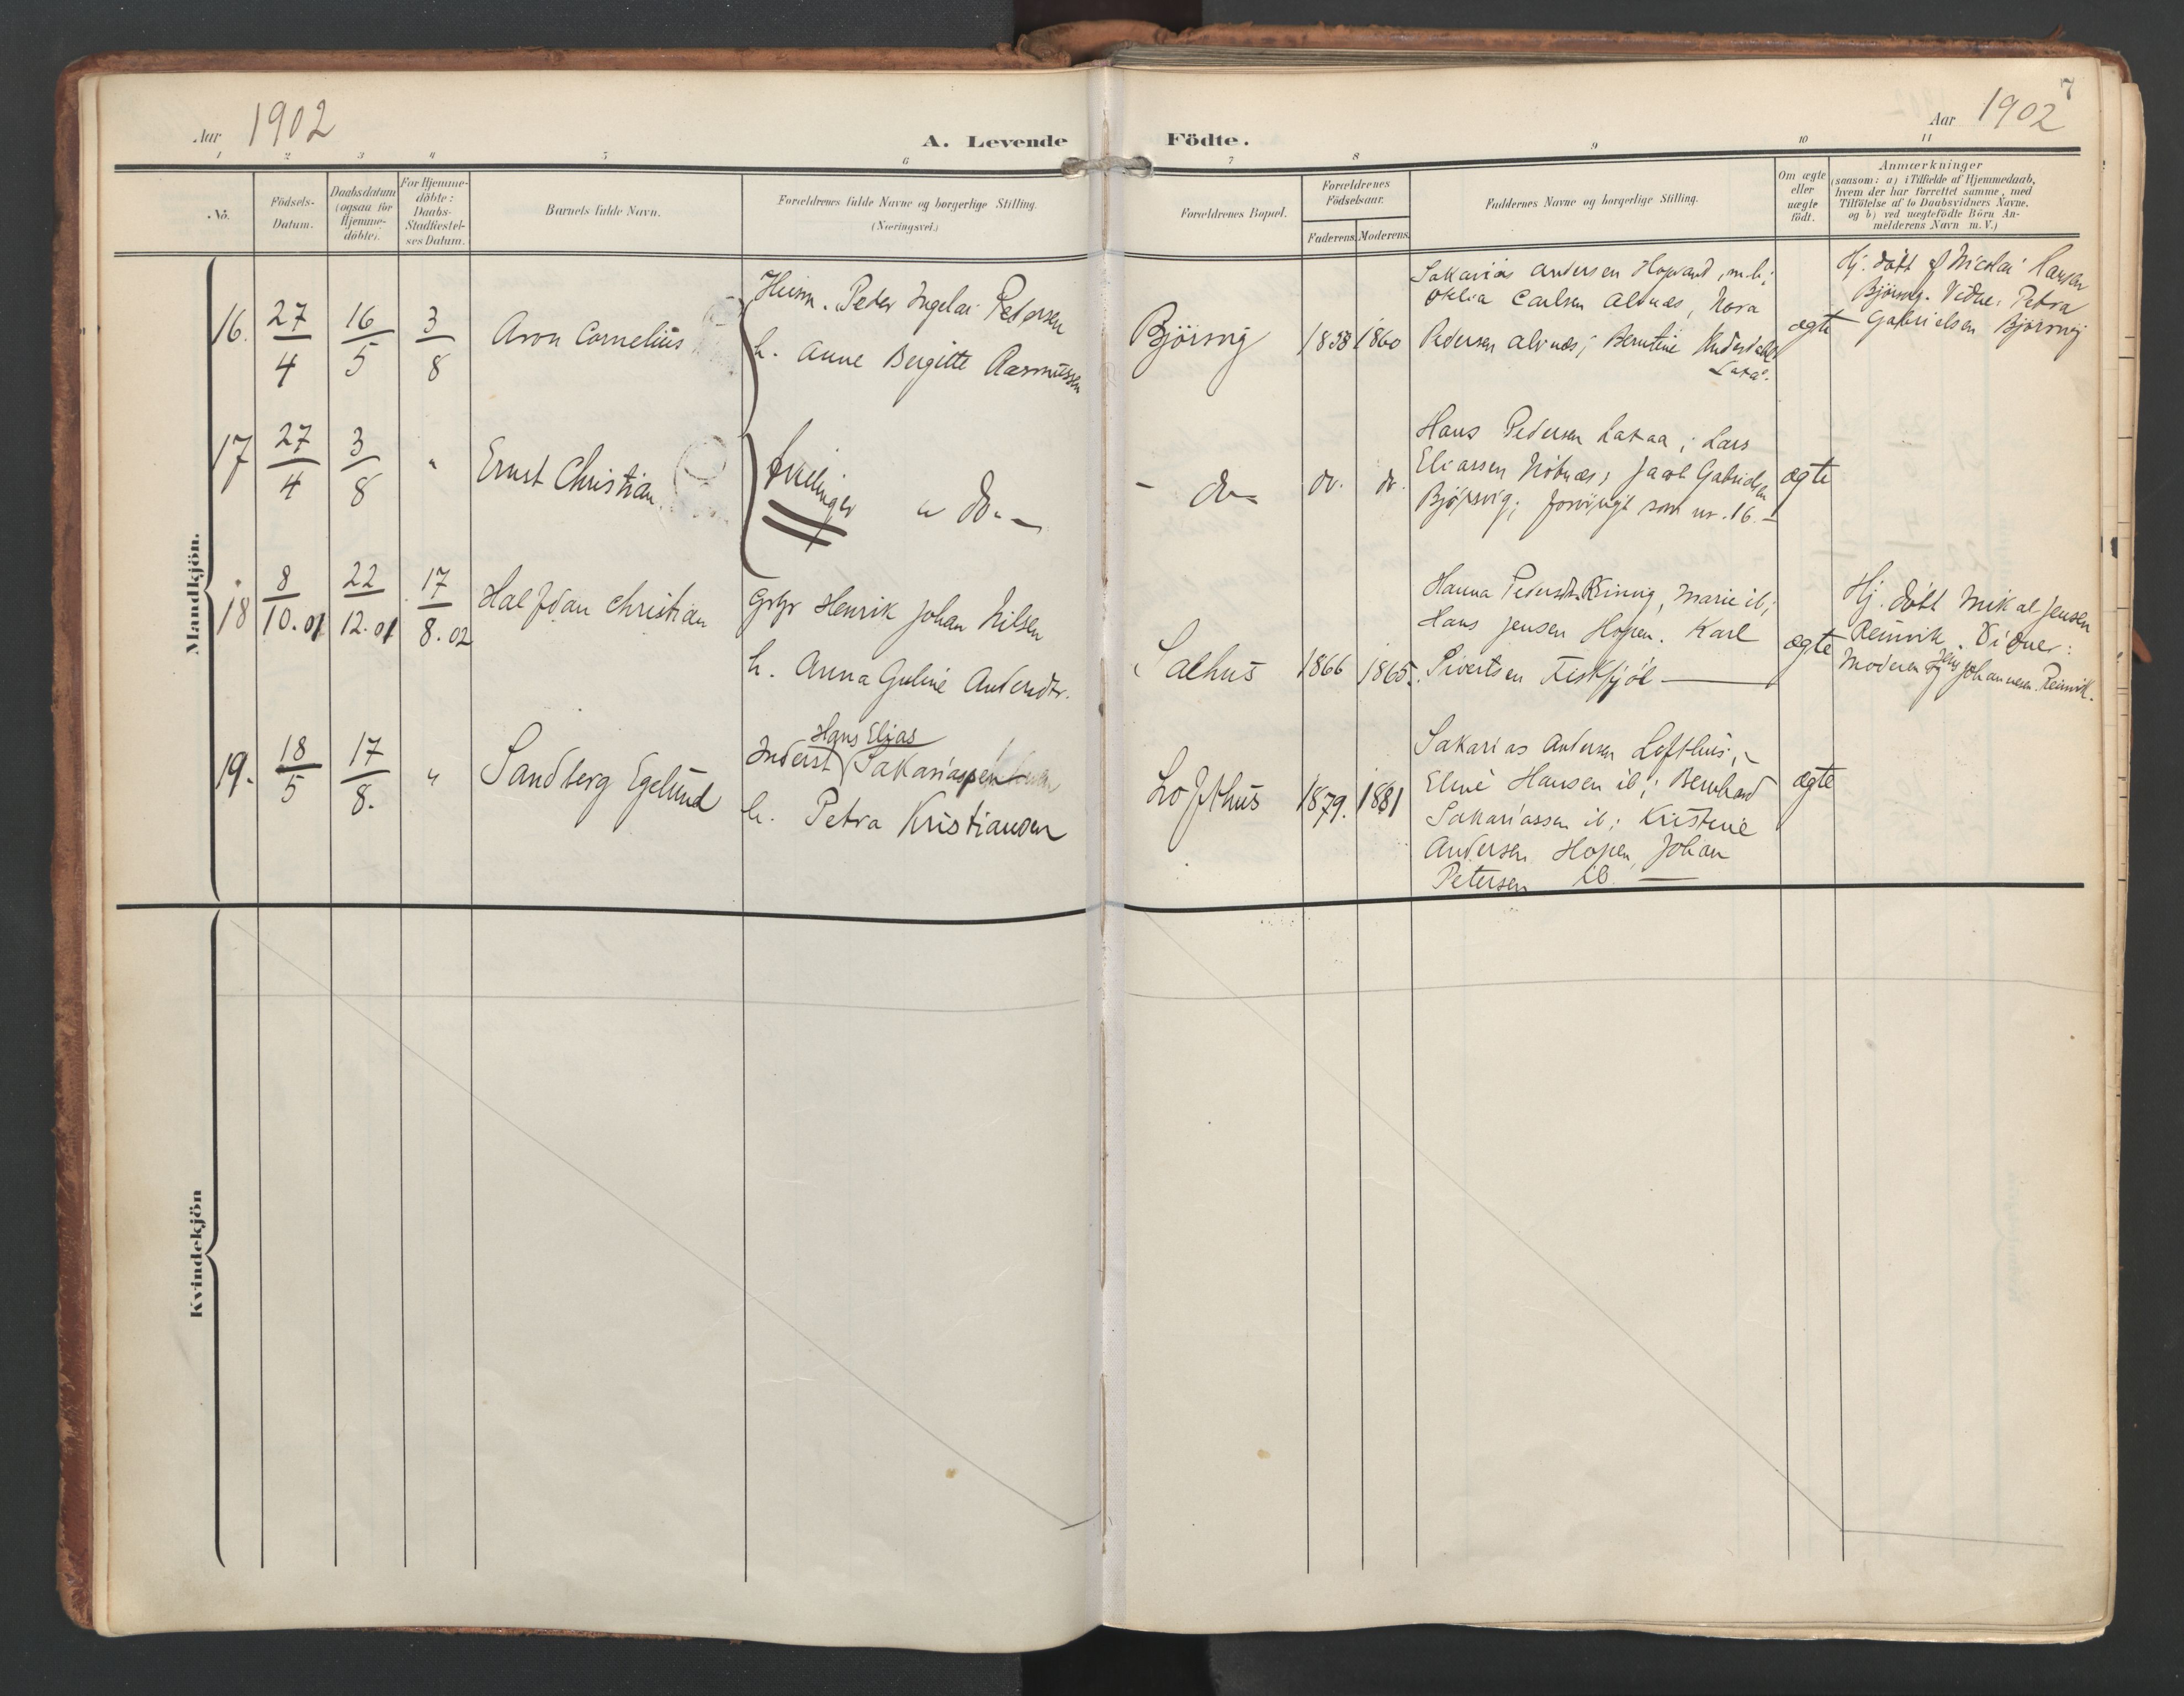 Aar 1902
A. Levende Födte.
Aar 1902
7
1 2 3 4 5 6 7 8 9 10 11
No.
Födsels-Datum.
Daabsdatum (ogsaa for Hjemme-döbte).
For Hjemme-döbte: Daabs-Stadfæstel-ses Datum.
Barnets fulde Navn.
Forældrenes fulde Navne og borgerlige Stilling. (Næringsvei.)
Forældrenes Bopæl.
Forældrenes Födselsaar.
Faderens. Moderens.
Faddernes Navne og borgerlige Stilling.
Om ægte eller uægte født.
Anmærkninger
(saasom: a) i Tilfælde af Hjemmedaab,
hvem der har forrettet samme, med
Tilföielse af to Daabsvidners Navne,
og b) ved uægtefödte Börn An-
melderens Navn m.V.)
Mandkjön.
16. 27/4 16/5 3/8 Aron Cornelius
Peder Ingelai Pedersen
h. Anne Bergitte Rasmussen
Björnvig 1858 1860
Sakarias Andersen
Carlsen Alvnæs, Nora
Pedersen Alvnæs; Berntine
ægte
Hj. döbt af Nicolai Hansen
Björnvig. Vidne: Petra
Gabrielsen Björnvig
17 27/4 3/8 " Ernst Christian.
Tvillinger " do. -
- do - do. do.
Hans Pedersen Lakaa; Lars
Eliassen; Jacob Gabrielsen
Björnvig; forövrigt som nr. 16. -
ægte
18 8/10.01 22/12.01 17/8.02 Halfdan Christian
Henrik Johan Nilsen
h. Anna Guline Andersdtr.
Salhus 1866 1865.
Hanna Pedersdt. Reinvig, Marie ib;
Hans Jensen Hopen. Karl
Sivertsen Fiskfjöl
ægte
Hj. döbt Mikal Jensen
Reinvik. Vidner:
Moderen og Jens Johannesen Reinvik.
19. 18/5 17/8. " Sandberg Egelund
Hans Elias
Inderst Sakariassen
h. Petra Kristiansen
Lofthus 1879. 1881
Sakarias Andersen Lofthus;
Eline Hansen ib; Bernhard
Sakariassen ib; Kristine
Andersen Hopen, Johan
Petersen ib.
ægte
Kvindekjön